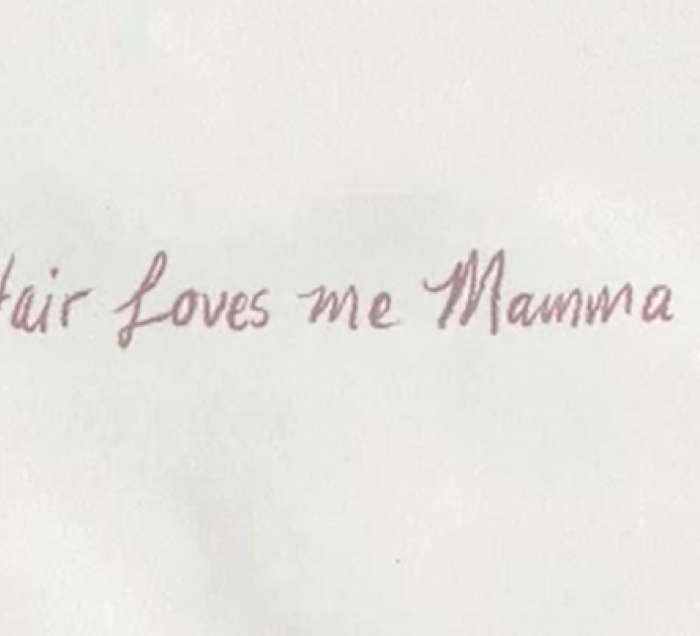 tair Loves me Mamma